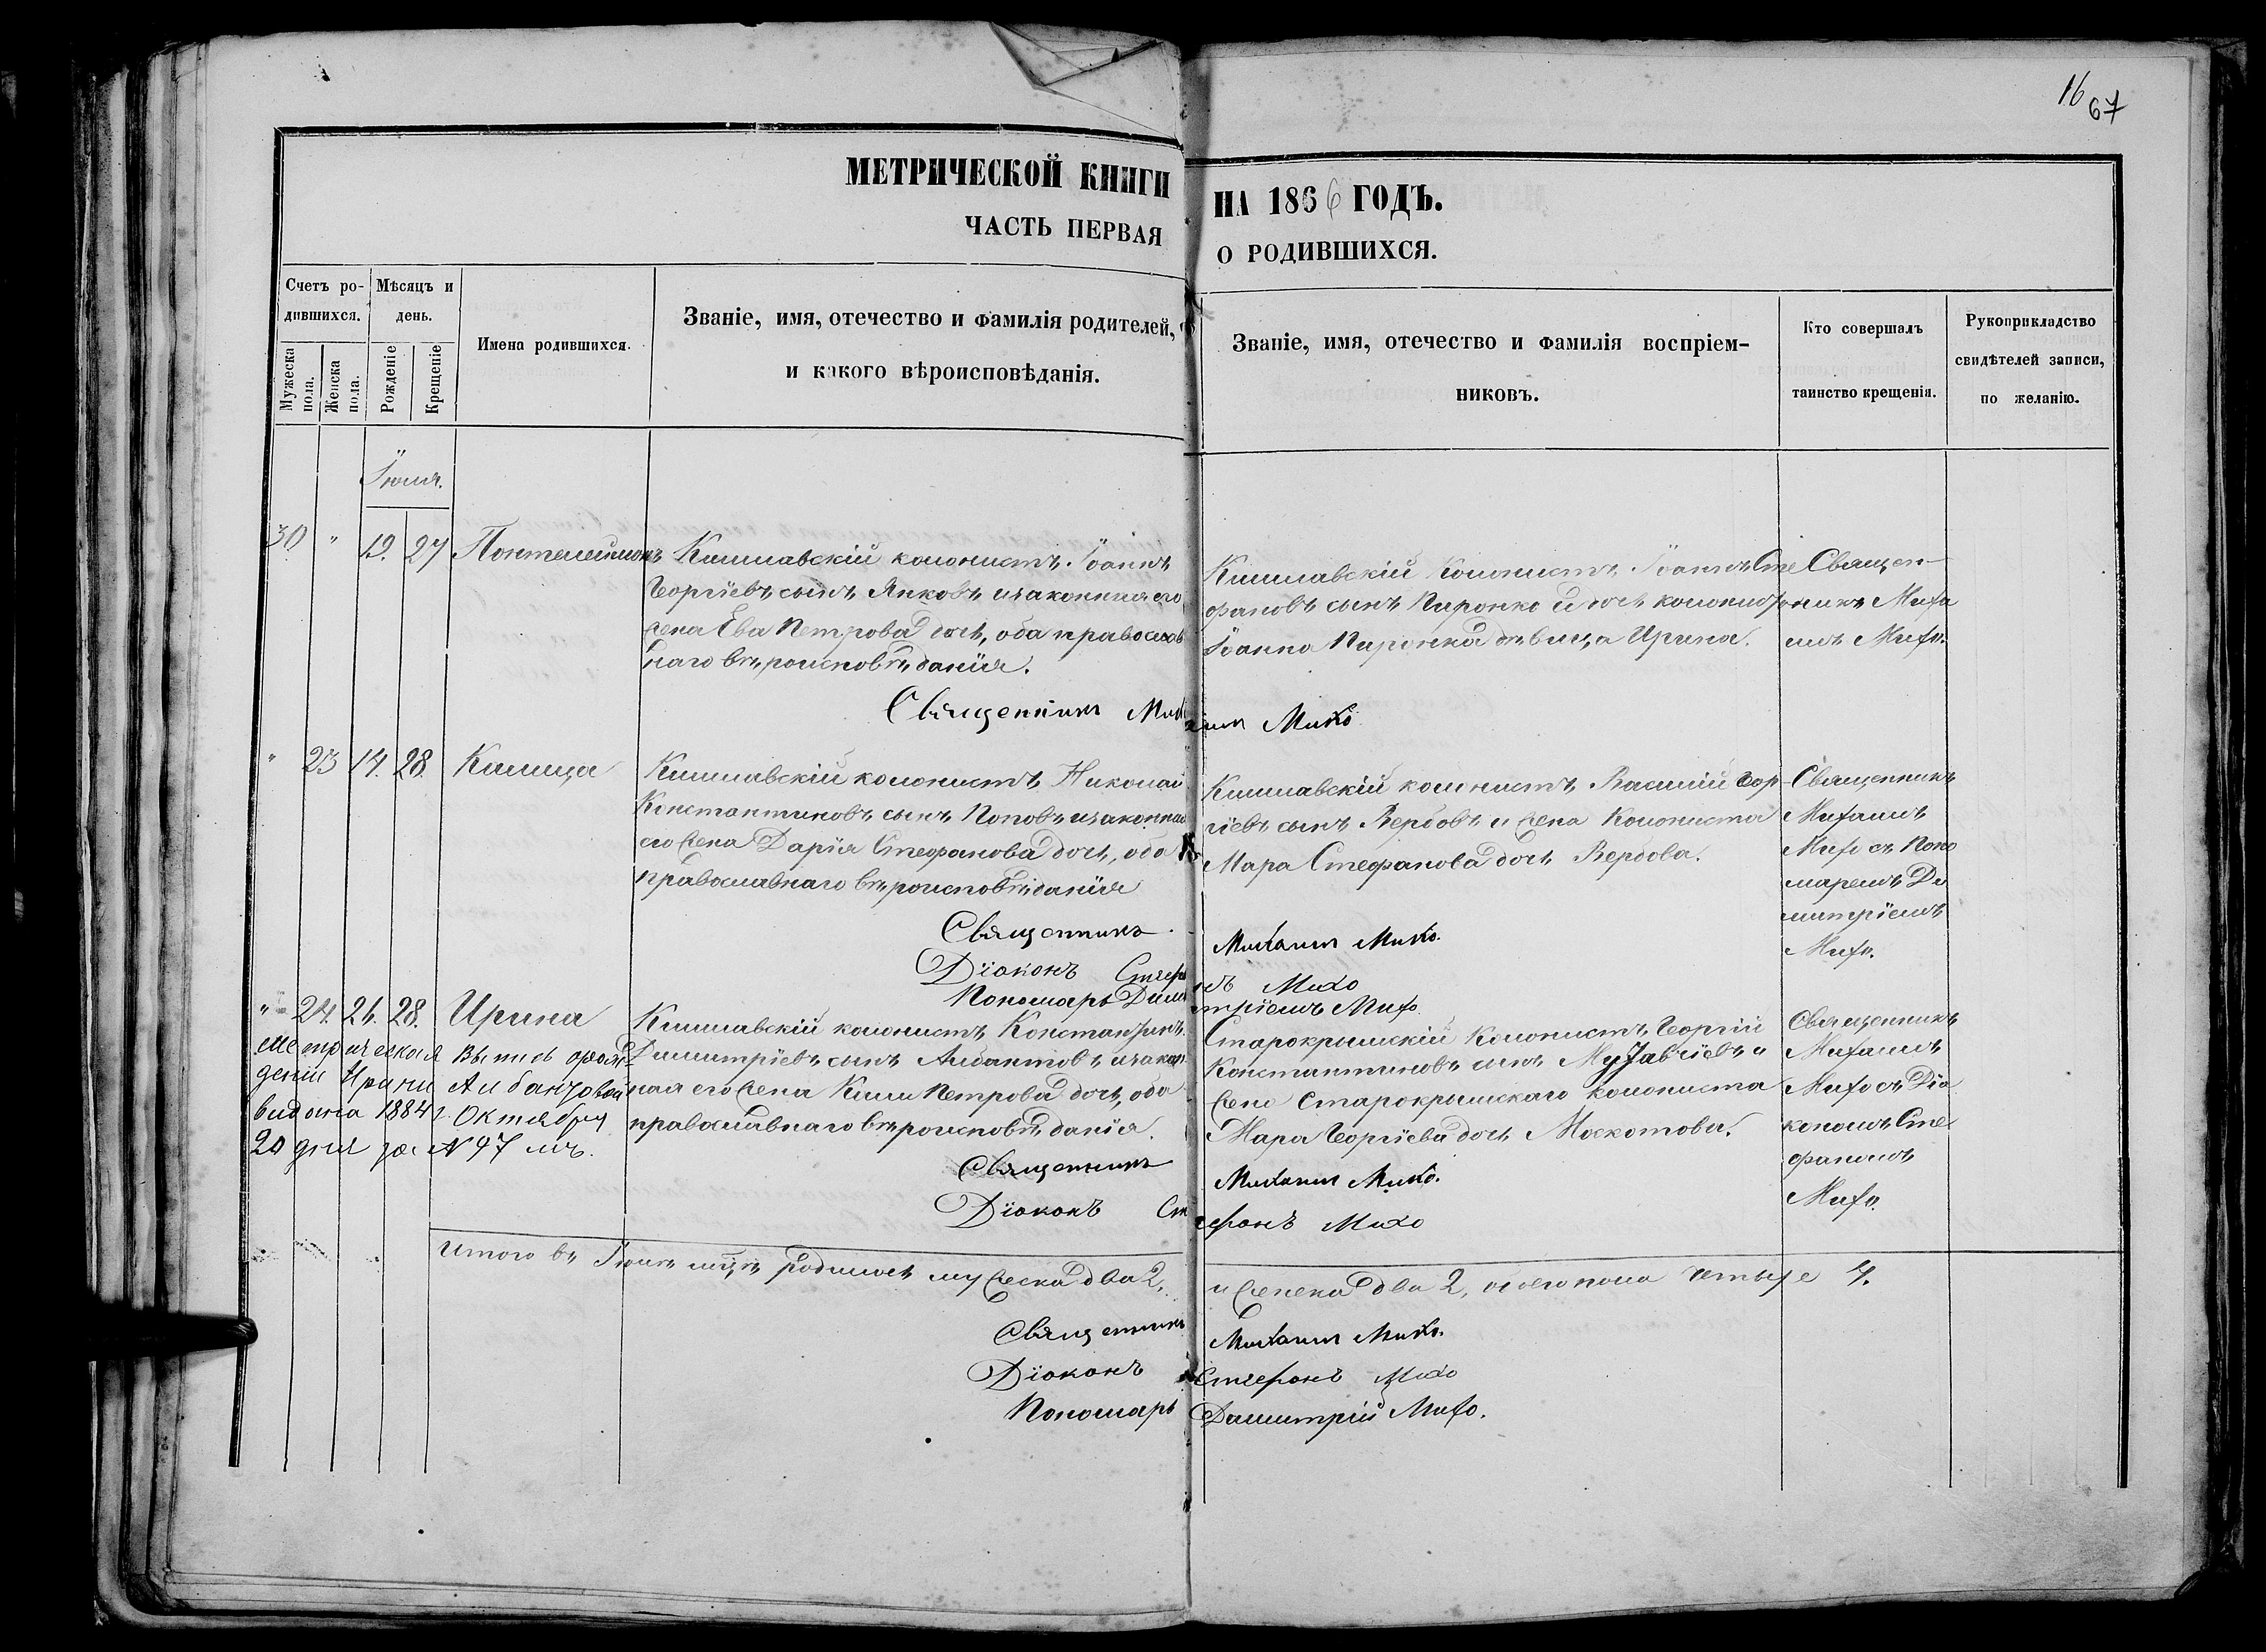 16 67
МЕТРИЧЕСКОЙ КНИГИ НА 1866 ГОДЪ.
ЧАСТЬ ПЕРВАЯ О РОДИВШИХСЯ.
Счетъ ро-
дившихся.
Мужеска
пола.
Женска
пола.
Мѣсяцъ и
день.
Рожденіе
Крещеніе
Имена родившихся.
Званіе, имя, отечество и фамилія родителей,
и какого вѣроисповѣданія.
Званіе, имя, отечество и фамилія воспріем-
никовъ.
Кто совершалъ
таинство крещенія.
Рукоприкладство
свидѣтелей записи,
по желанію.
30 " 19. 27
Кишлавскій колонистъ Іоаннъ
Георгіевъ сынъ Янковъ и законная его
жена Ева Петрова дочь, оба православ
наго вѣроисповѣданія.
Кишлавскій колонистъ Іоаннъ Сте
фановъ сынъ Пиронко и дочь
Іоанна Пиронка дѣвица Ирина.
Священ-
никъ Миха
илъ Михо.
Священникъ Михаилъ Михо
" 23 14. 28. Калица
Кишлавскій колонистъ Николай
Константиновъ сынъ Поповъ и законная
его жена Дарія Стефанова дочь, оба
православнаго вѣроисповѣданія
Кишлавскій колонистъ Василій Геор-
гіевъ сынъ Вербовъ и жена колониста
Мара Стефанова дочь Вербова.
Священникъ
Михаилъ
Михо съ Поно
маремъ Ди
митріемъ
Михо.
Священникъ Михаилъ Михо.
Діаконъ Стефанъ Михо
Пономарь Димитріемъ Михо
" 24. 26. 28. Ирина
Кишлавскій колонистъ Константинъ
Димитріевъ сынъ Албантовъ и закон
ная его жена Кили Петрова дочь, оба
православнаго вѣроисповѣданія.
Старокрымскій колонистъ Георгій
Константиновъ сынъ и
жена Старокрымскаго колониста
Мара Георгіева дочь Москотова.
Священникъ
Михаилъ
Михо съ Діа
кономъ Сте
фаномъ
Михо.
Метрическая выпись о рож-
деніи Ирини
видана 1884 г. Октября
20 дня за №47 мъ.
Священникъ Михаилъ Михо.
Діаконъ Стефанъ Михо
Итого въ мцѣ родилось мужеска два 2, и женска два 2, обоего пола четыре 4.
Священникъ Михаилъ Михо.
Діаконъ Стефанъ Михо
Пономарь Димитрій Михо.